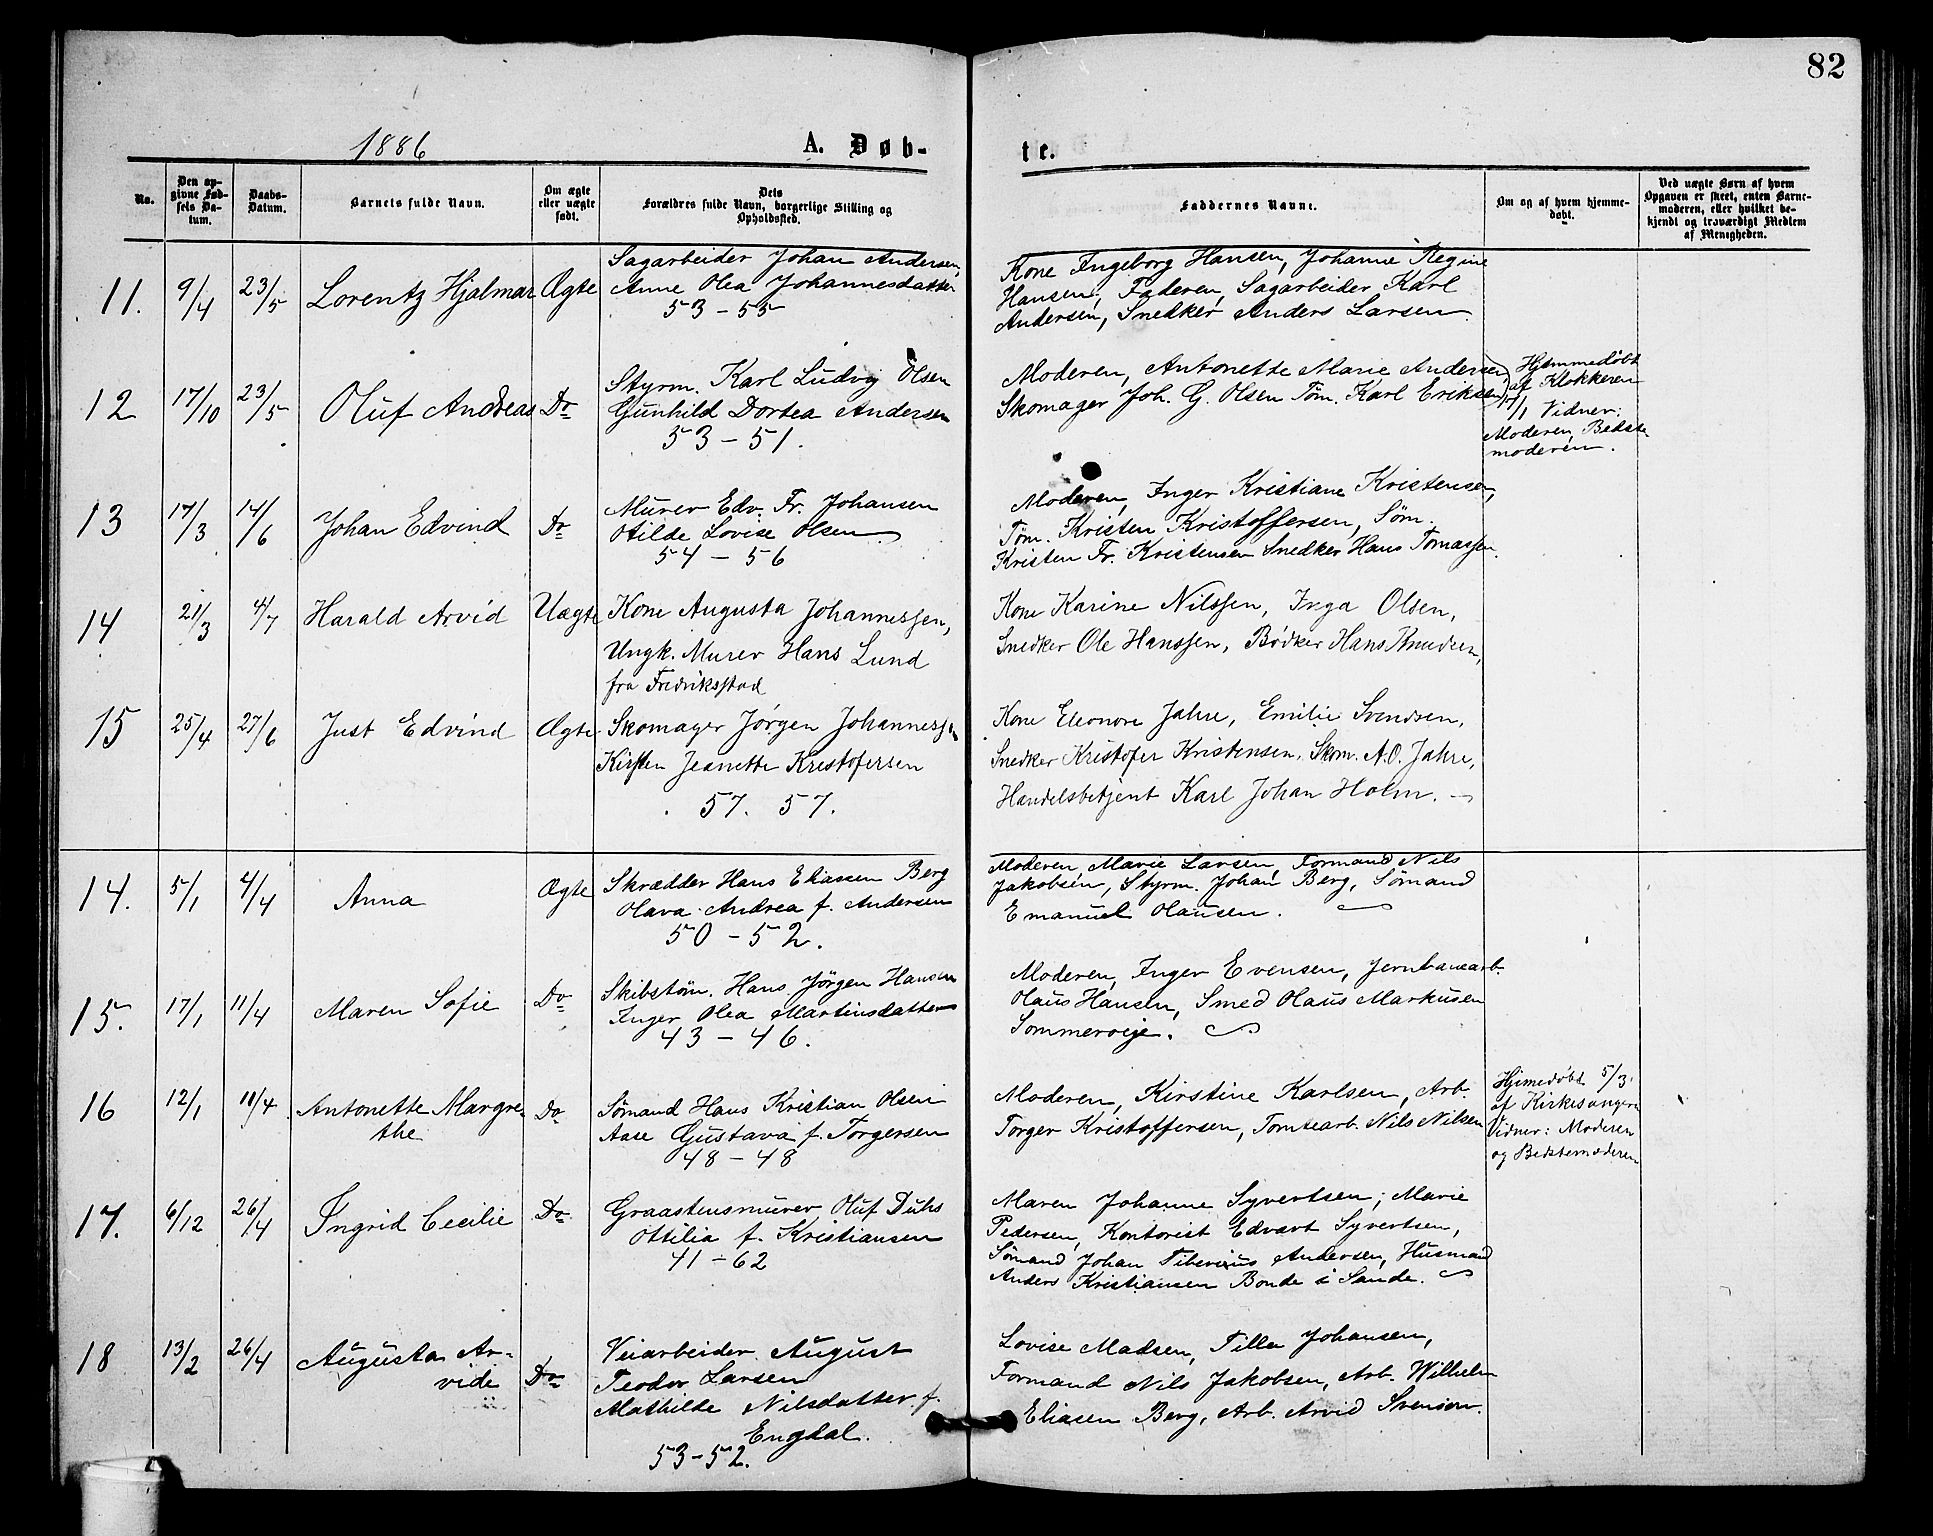 82
1886
A. Døb-
te.
No.
Den op-
givne Fød-
sels Da-
tum.
Daabs-
Datum.
Barnets fulde Navn.
Om ægte
eller uægte
født.
Dets
Forældres fulde Navn, borgerlige Stilling og
Opholdssted.
Faddernes Navne.
Om og af hvem hjemme-
døbt.
Ved uægte Børn af hvem
Opgaven er skeet, enten Barne-
moderen, eller hvilket be-
kjendt og troværdigt Medlem
af Menigheden.
11. 9/4 23/5 Lorentz Hjalmar Ægte
Sagarbeider Johan Andersen,
Anne Olea Johannesdatter
53 - 55
Kone Ingeborg Hansen, Johanne Regine
Hansen, Faderen, Sagarbeider Karl
Andersen, Snedker Anders Larsen
12 17/10 23/5 Oluf Andreas Do
Styrm. Karl Ludvig Olsen
Gunhild Dortea Andersen
53 - 51.
Moderen, Antonette Marie Andersen,
Skomager Joh. G. Olsen Tøm. Karl Eriksen
Hjemmedøbt
af Klokkeren
17/1 Vidner:
Moderen, Bedste
moderen.
13 17/3 14/6 Johan Edvind Do
Murer Edv. Fr. Johansen
Otilde Lovise Olsen
54 - 56
Moderen, Inger Kristiane Kristensen,
Tøm. Kristen Kristoffersen, Søm.
Kristen Fr. Kristensen Snedker Hans Tomassen.
14 21/3 4/7 Harald Arvid Uægte
Kone Augusta Johannessen,
Ungk. Murer Hans Lund
fra Fredriksstad
Kone Karine Nilssen, Inga Olsen,
Snedker Ole Hanssen, Bødker Hans Knudsen,
15 25/4 27/6 Just Edvind Ægte
Skomager Jørgen Johannessen
Kirsten Jeanette Kristofersen
57. 57.
Kone Eleonore Jahre, Emilie Svendsen,
Snedker Kristofer Kristensen, Skom. A.O. Jahre,
Handelsbetjent Karl Johan Holm. -
14. 5/1 4/4 Anna Ægte
Skrædder Hans Eliassen Berg
Olava Andrea f. Andersen
50 - 52.
Moderen, Marie Larsen, Formand Nils
Jakobsen, Styrm. Johan Berg, Sømand
Emanuel Olausen.
15. 17/1 11/4 Maren Sofie Do
Skibstøm. Hans Jørgen Hansen
Inger Olea Martinsdatter
43 - 46.
Moderen, Inger Evensen, Jernbanearb.
Olaus Hansen, Smed Olaus Markusen
Sommerøeje.
16 12/1 11/4 Antonette Margre-
the Do
Sømand Hans Kristian Olsen
Aase Gustava f. Torgersen
48 - 48
Moderen, Kirstine Karlsen, Arb.
Torger Kristoffersen, Tomtearb. Nils Nilsen
Hjemedøbt 5/3
af Kirkesangeren
Vidner: Moderen
og Bedstemoderen
17. 6/12 26/4 Ingrid Cecilie Do
Graastensmurer Oluf Duhs
Ottilia f. Kristiansen
41 - 62
Maren Johanne Syvertsen, Marie
Pedersen, Kontorist Edvart Syvertsen,
Sømand Johan Tiberius Andersen, Husmand
Anders Kristiansen Bonde i Sande.
18 13/2 26/4 Augusta Ar-
vide Do
Veiarbeider August
Teodor Larsen
Mathilde Nilsdatter f.
Engdal.
53 - 52.
Lovise Madsen, Tilla Johansen,
Formand Nils Jakobsen, Arb. Wilhelm
Eliasen Berg, Arb. Arvid Svenson.